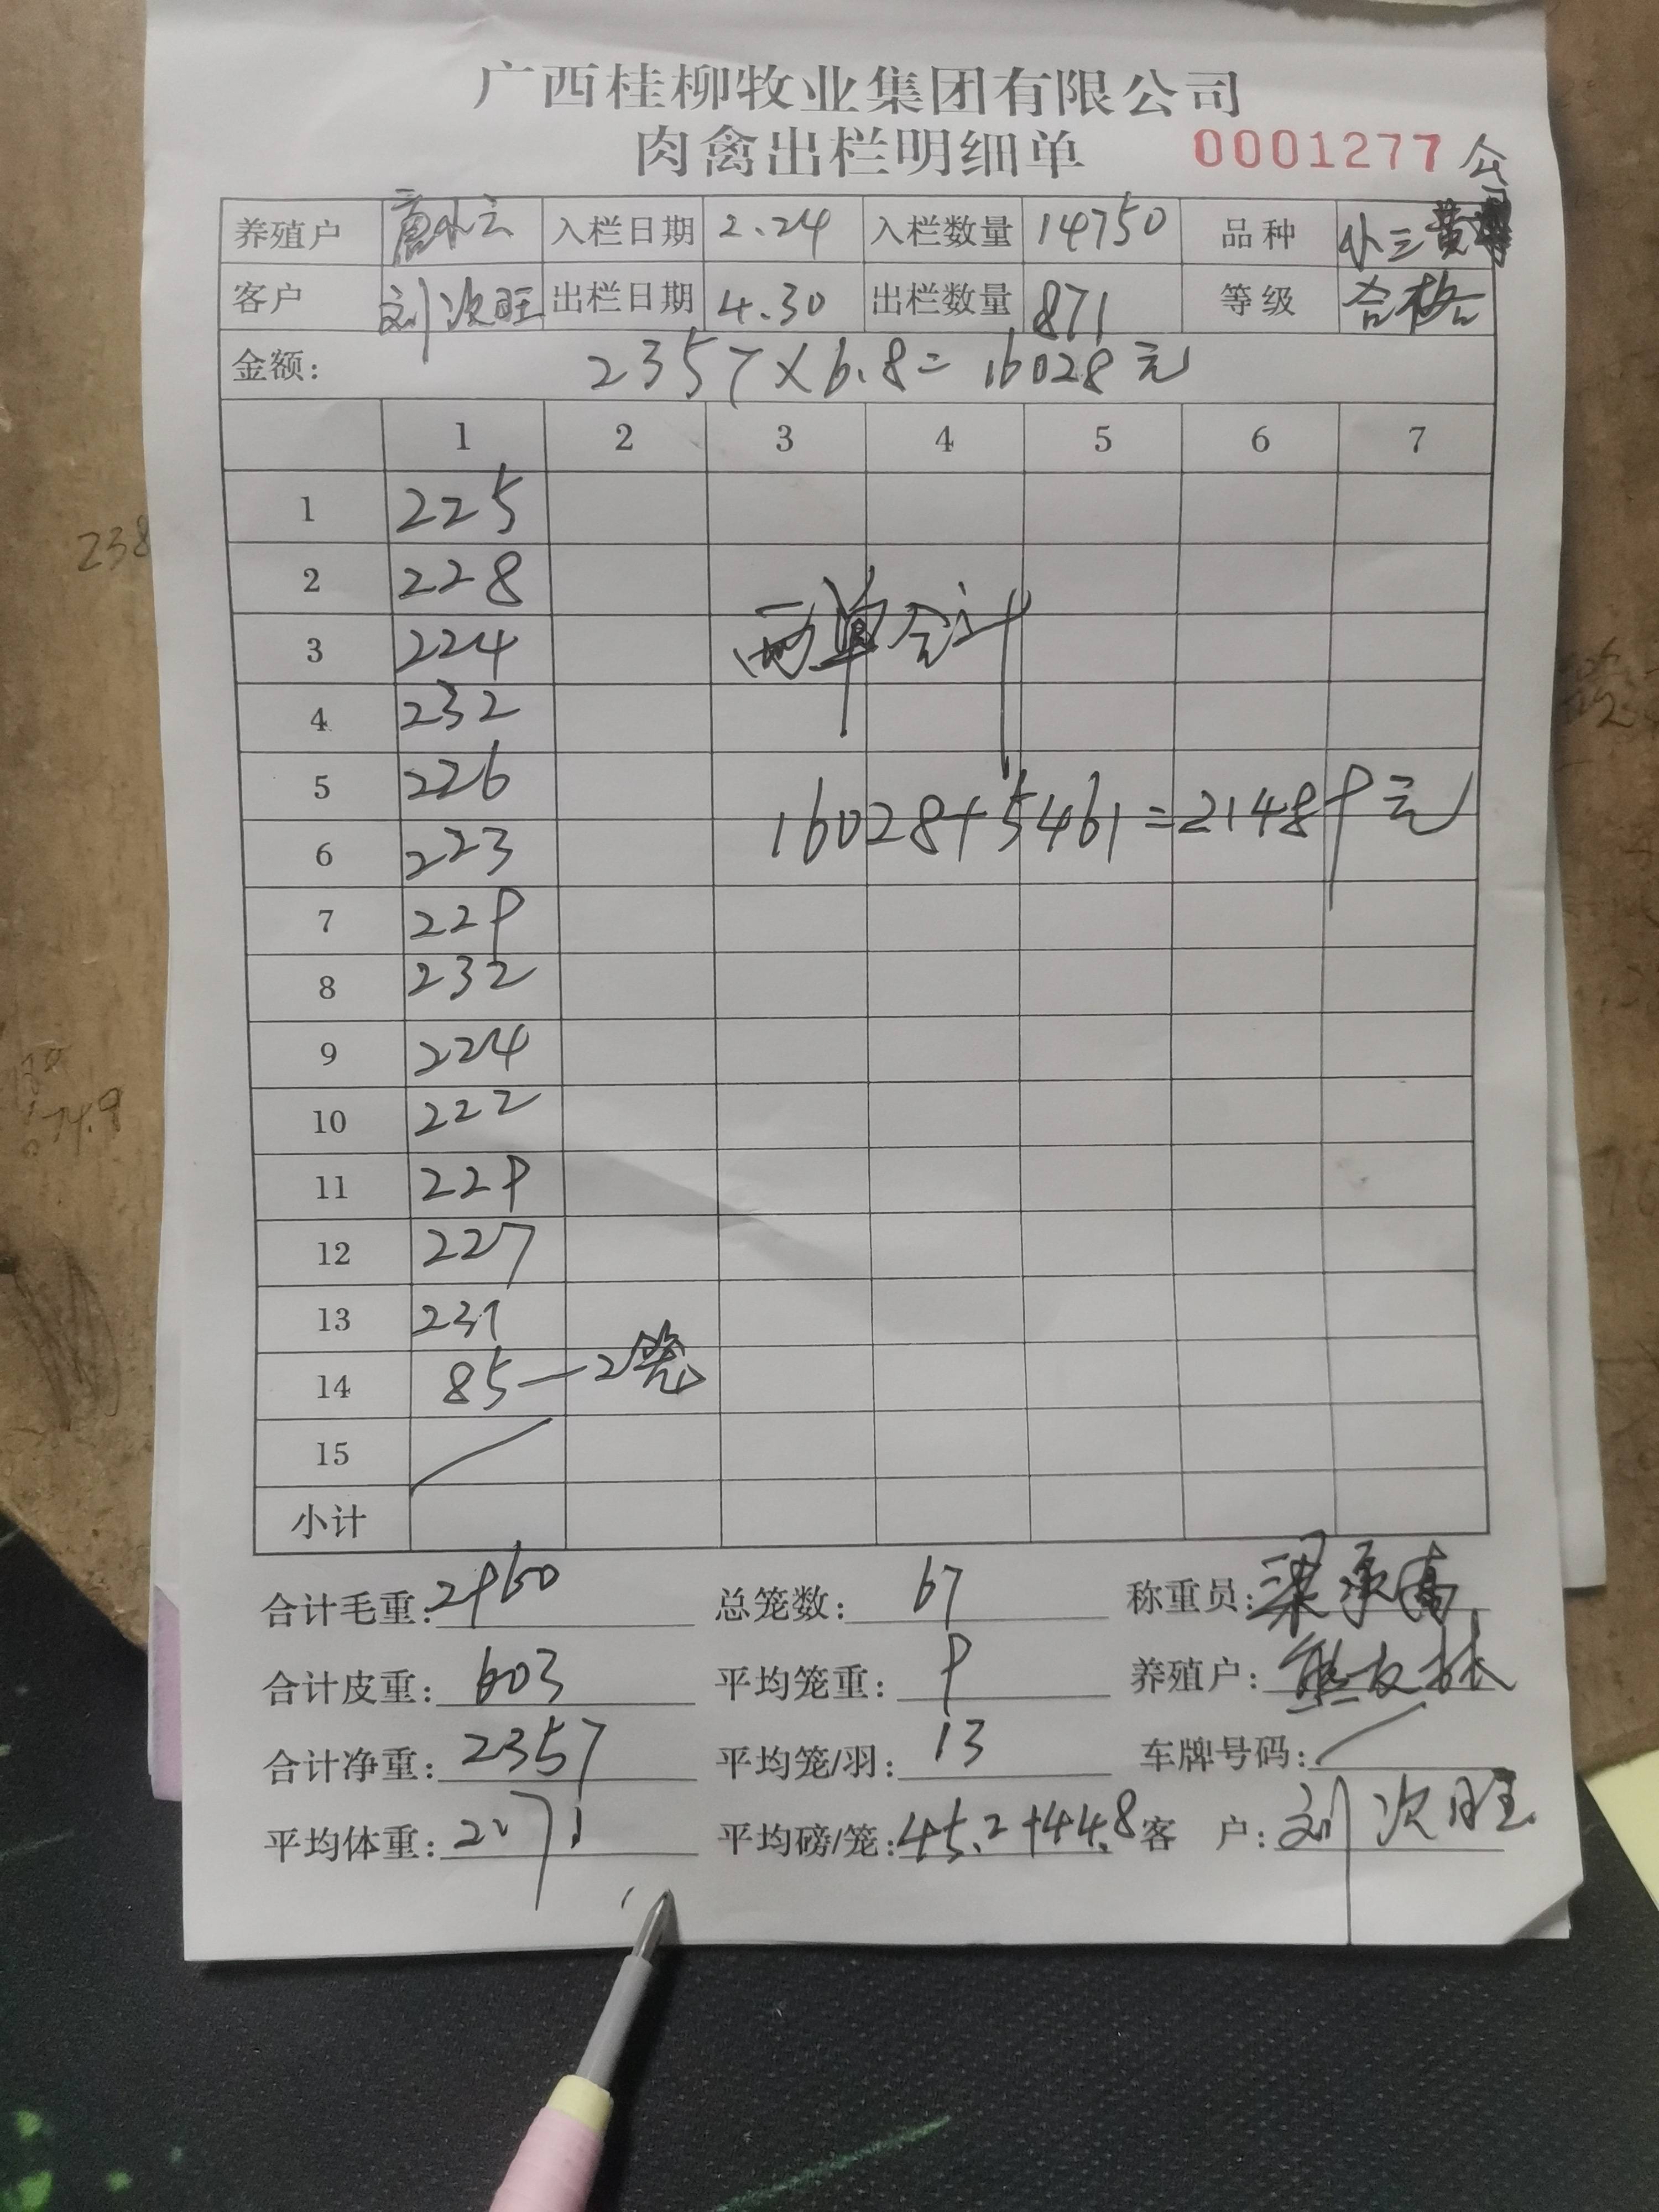 广西桂柳牧业集团有限公司
肉禽出栏明细单 0001277 公
养殖户 入栏日期 2.24 入栏数量 14750 品种 小三黄
客户 刘次旺 出栏日期 4.30 出栏数量 871 等级 合格
金额: 2357×6.8=16028元
1 2 3 4 5 6 7
1 225
2 228
3 224
4 232
5 226
6 223
7 229
8 232
9 224
10 222
11 229
12 227
13 231
14 85—2笼
15
小计
两单合计
16028+5461=21489元
合计毛重: 2960 总笼数: 67 称重员: 梁承高
合计皮重: 603 平均笼重: 9 养殖户: 熊友林
合计净重: 2357 平均笼/羽: 13 车牌号码:
平均体重: 2.71 平均磅/笼: 45.2+44.8 客户: 刘次旺
238
74.9